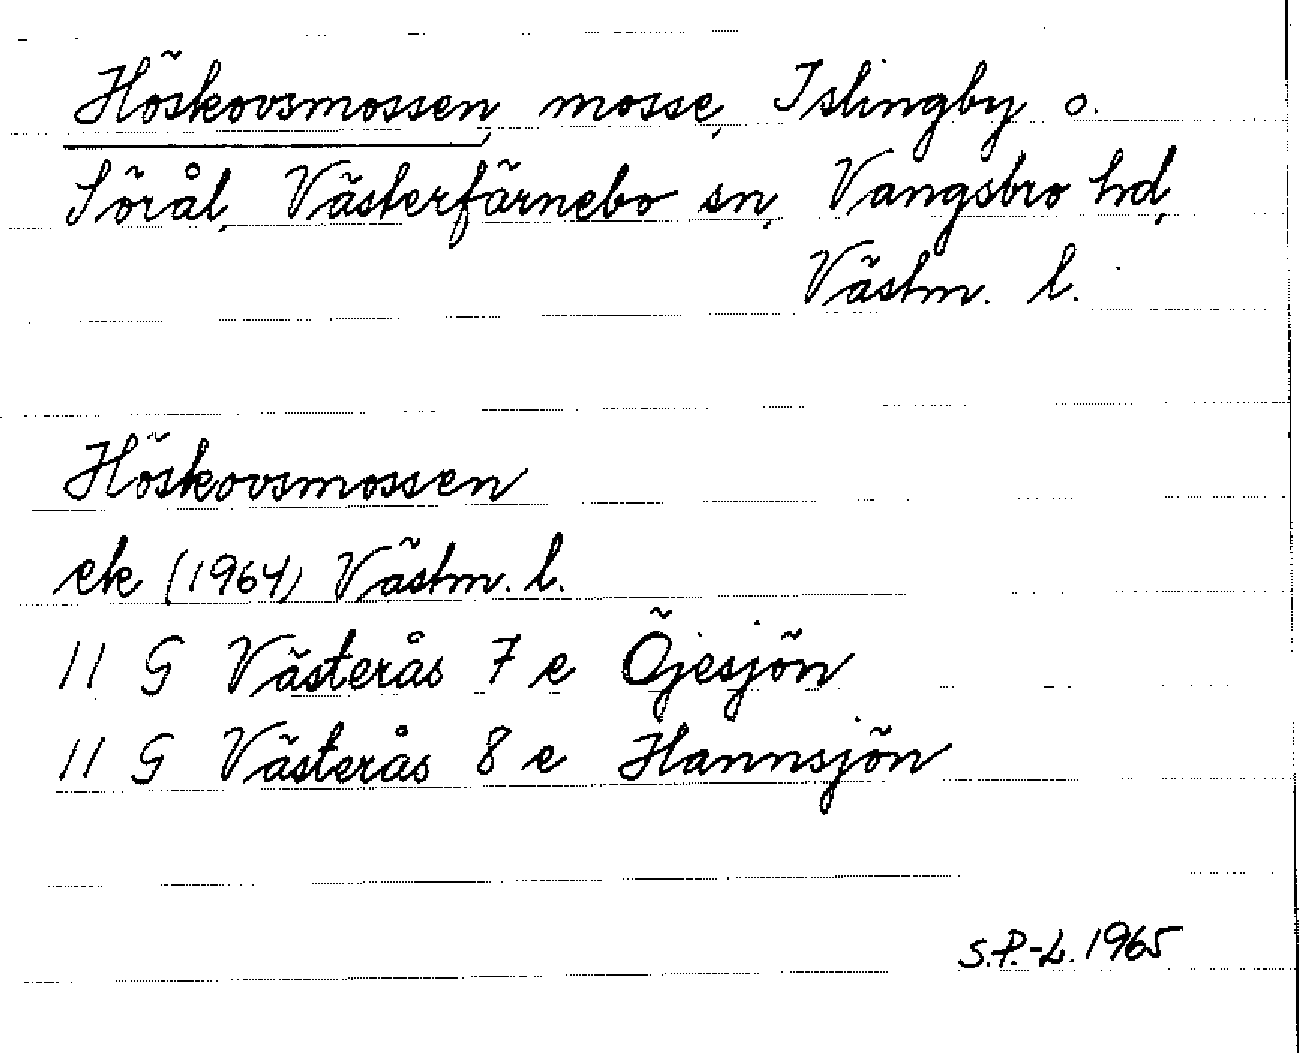 Höskovsmossen, mosse, Islingby o.
Sörål, Västerfärnebo sn, Vangsbro hd,
Västm. l.
Höskovsmossen
ek (1964) Västm. l.
11 G Västerås 7 e Öjesjön
11 G Västerås 8 e Hannsjön
S.P.-L. 1965